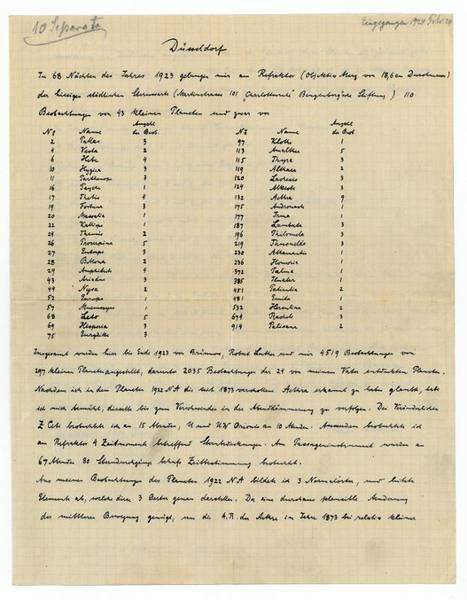 10 Separata
Eingegangen 1924 Febr. 20
Düsseldorf
In 68 Nächten des Jahres 1923 gelangen mir am Refraktor (Objektiv Merz von 18,6 cm Durchmesser)
der hiesigen städtischen Sternwarte (Martinstrasse 101 „Charlottenruhe" Benzenbergische Stiftung) 110
Beobachtungen von 43 kleinen Planeten und zwar von
No Name Anzahl der Beob. No Name Anzahl der Beob.
2 Pallas 3 97 Klotho 1
4 Vesta 2 113 Amalthea 5
6 Hebe 4 115 Thyra 3
10 Hygiea 3 119 Althaea 2
11 Parthenope 3 120 Lachesis 3
16 Psyche 1 124 Alkeste 3
17 Thetis 4 132 Aethra 9
19 Fortuna 3 175 Andromache 1
20 Massalia 1 177 Irma 1
22 Kalliope 1 187 Lamberta 3
24 Themis 2 196 Philomela 3
26 Proserpina 5 219 Thusnelda 3
27 Euterpe 3 230 Athamantis 1
28 Bellona 2 236 Honoria 1
29 Amphitrite 4 372 Palma 1
43 Ariadne 3 385 Ilmatar 1
44 Nysa 2 451 Patientia 2
52 Europa 3 481 Emita 1
57 Mnemosyne 1 532 Herculina 2
68 Leto 5 674 Rachele 1
69 Hesperia 3 914 Palisana 2
75 Eurydike 3
Insgesamt wurden hier bis Ende 1923 von Brünnow, Robert Luther und mir 4519 Beobachtungen von
247 kleinen Planeten angestellt, darunter 2035 Beobachtungen der 24 von meinem Vater entdeckten Planeten.
Nachdem ich in dem Planeten 1922 NA die seit 1873 verschollene Aethra erkannt zu haben glaubte, ließ
ich mich bemüht, dieselbe bis zum Verschwinden in der Abenddämmerung zu verfolgen. Den Veränderlichen
Z Ceti beobachtete ich an 15 Abenden, U und UW Orionis an 10 Abenden. Ausserdem beobachtete ich
am Refraktor 4 Zeitmomente betreffend Sternbedeckungen. Am Passageninstrument wurden an
67 Abenden 80 Sterndurchgänge behufs Zeitbestimmung beobachtet.
Aus meinen Beobachtungen des Planeten 1922 NA bildete ich 3 Normalörter, und leitete
Elemente ab, welche diese 3 Oerter genau darstellen. Da eine durchaus plausible Aenderung
der mittleren Bewegung genügt, um die A.R. der Aethra im Jahre 1873 bei relativ kleiner